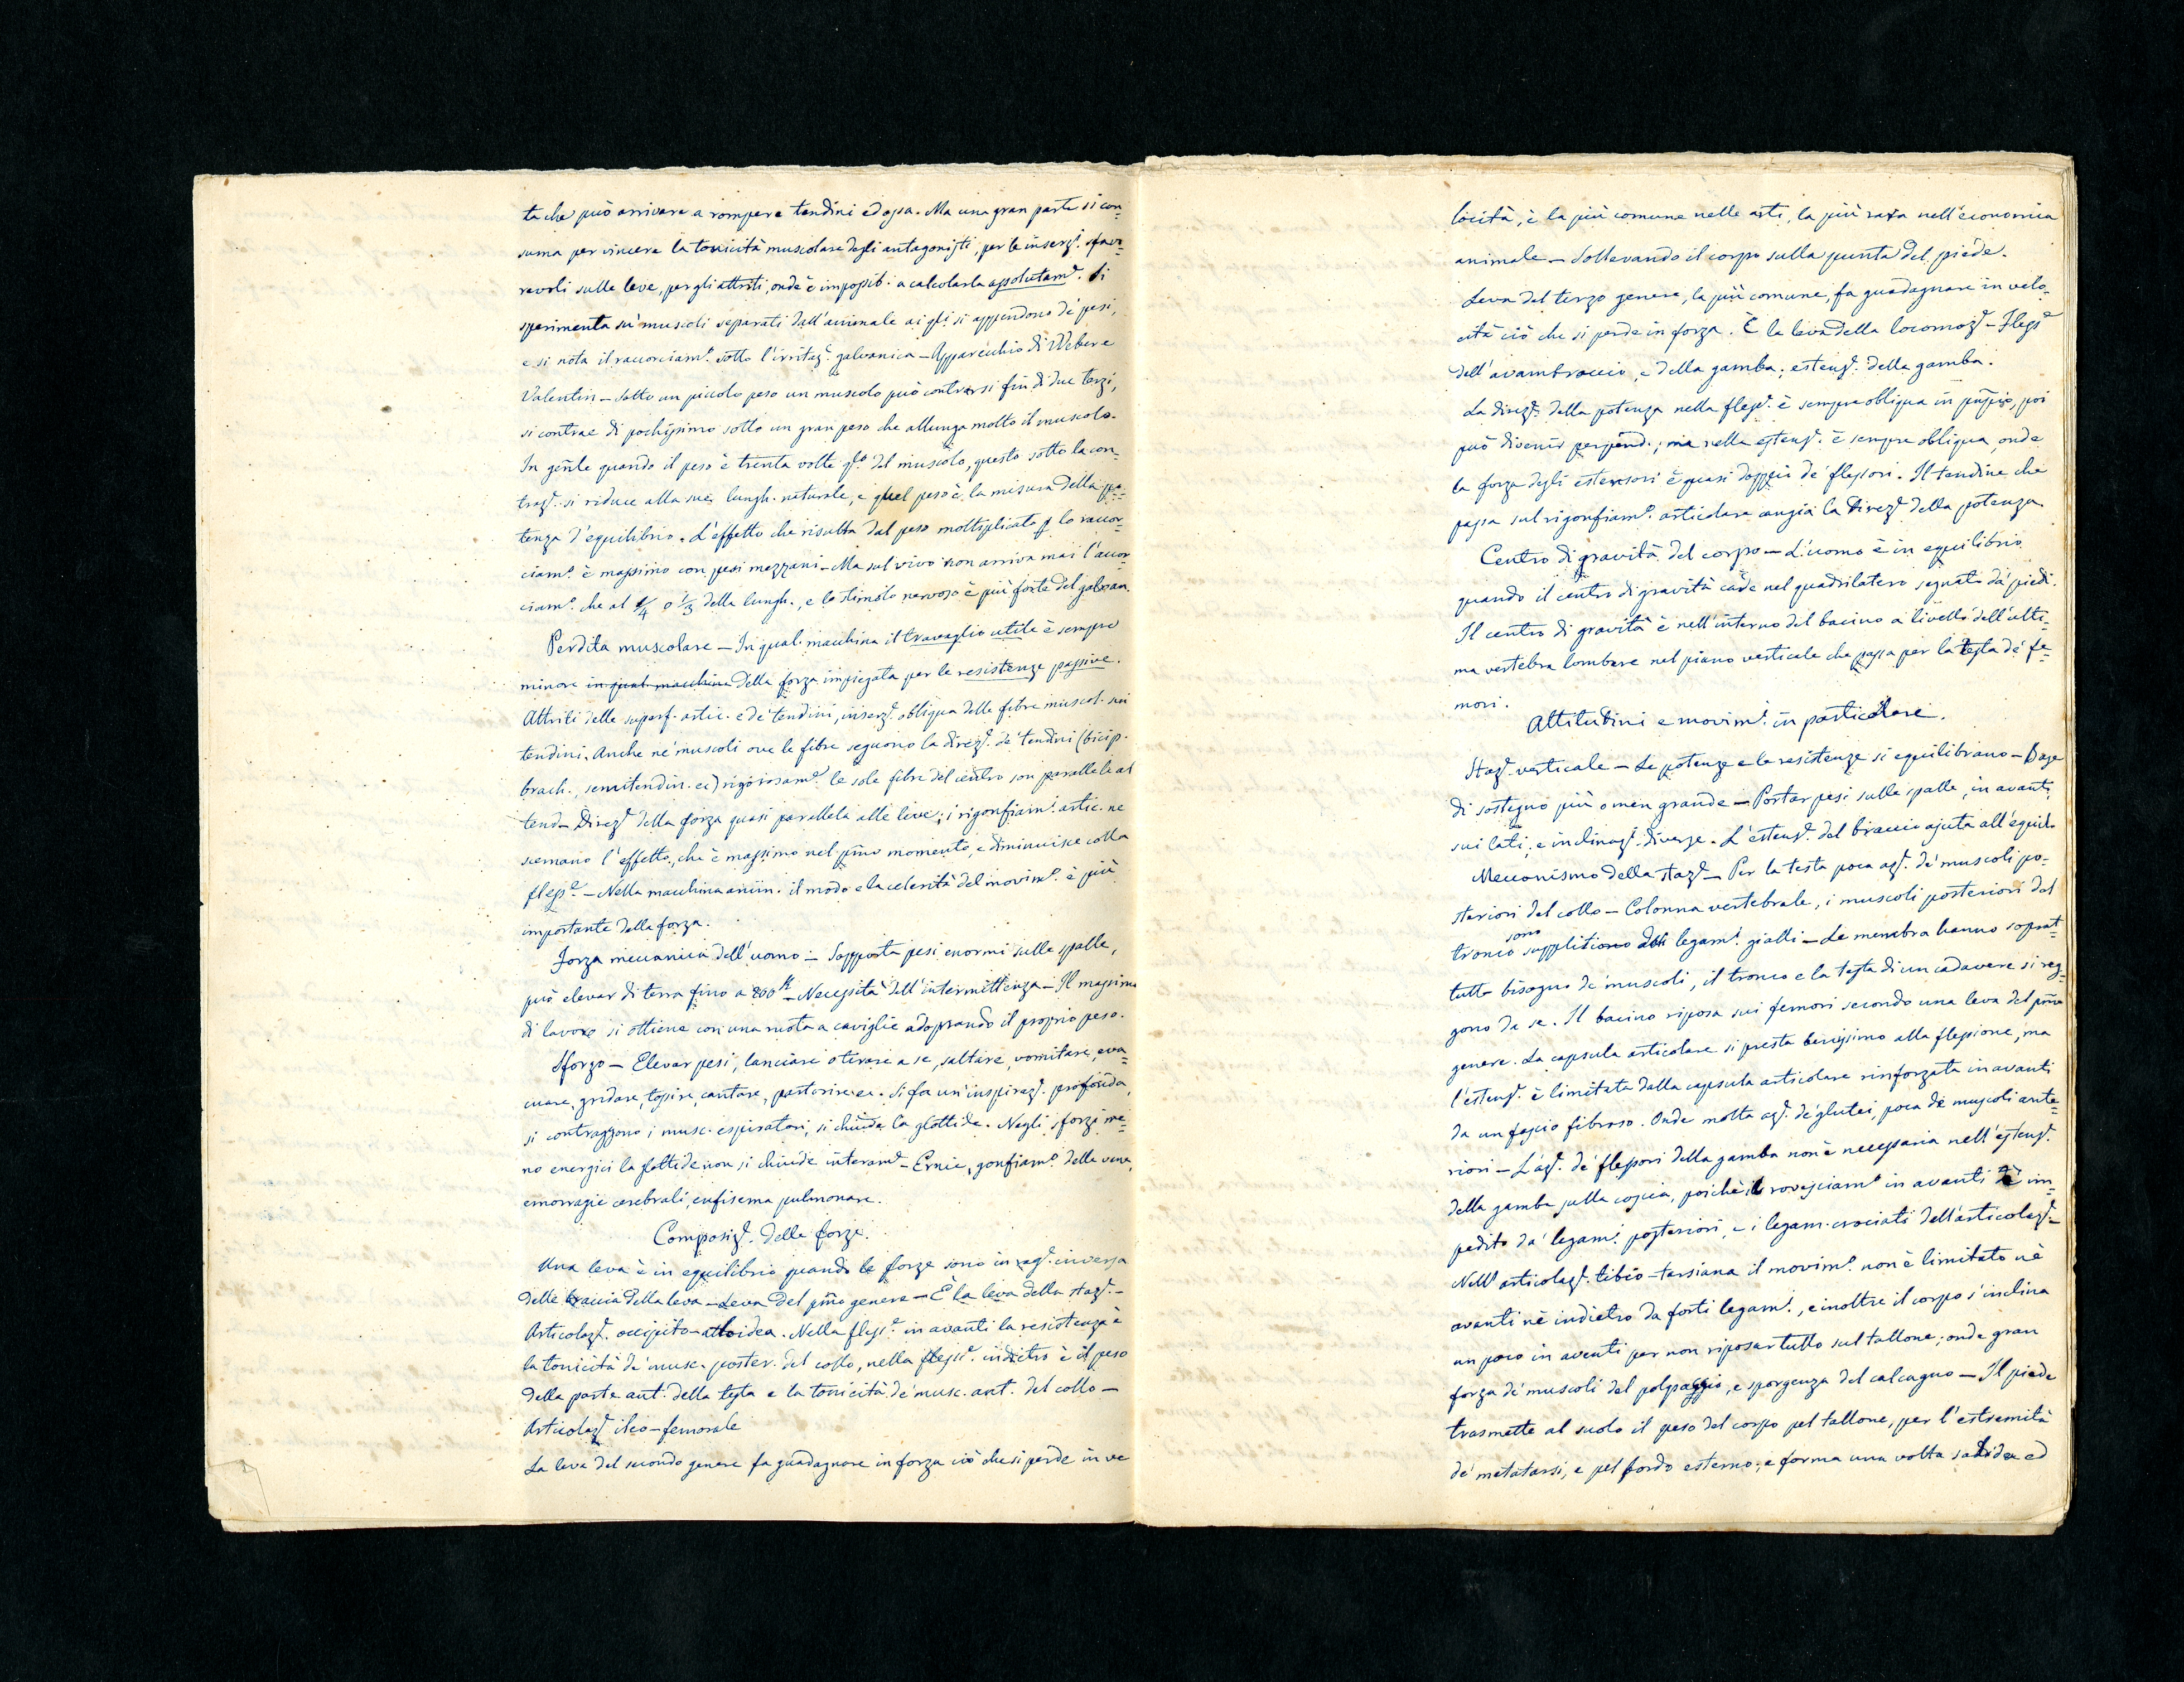 ta che può arrivare a rompere tendini ed ossa. Ma una gran parte si con-
suma per vincere la tonicità muscolare degli antagonisti, per le inserz.i sfavo-
revoli sulle leve, per gli attriti, onde è impossib. a calcolarla assolutam.e Si
sperimenta su' muscoli separati dall'animale ai q.li si appendono de' pesi,
e si nota il raccorciam.o sotto l'irritaz.e galvanica — Apparecchio di Weber e
Valentin — Sotto un piccolo peso un muscolo può contrarsi fin di due terzi,
si contrae di pochissimo sotto un gran peso che allunga molto il muscolo.
In gen̄le quando il peso è trenta volte q.lo del muscolo, questo sotto la con-
traz.e si riduce alla sua lungh. naturale, e quel peso è la misura della po-
tenza d'equilibrio. L'effetto che risulta dal peso moltiplicato p lo raccor-
ciam.o è massimo con pesi mezzani — Ma sul vivo non arriva mai l'accor-
ciam.o che al 1/4 o 1/3 della lungh., e lo stimolo nervoso è più forte del galvan.
Perdita muscolare — In qual. macchina il travaglio utile è sempre
minore in qual. macchina della forza impiegata per le resistenze passive.
Attriti delle superf. artic. e de' tendini, inserz.e obliqua delle fibre muscol. sui
tendini. Anche ne' muscoli ove le fibre seguono la direz.e de' tendini (bicip.
brach., semitendin. ec) rigorosam.e le sole fibre del centro son parallele al
tend — Direz.e della forza quasi parallela alle leve; i rigonfiam.i artic. ne
scemano l'effetto, che è massimo nel pm̄o momento, e diminuisce colla
fless.e — Nella macchina anim. il modo e la celerità del movim.o è più
importante della forza.
Forza meccanica dell'uomo — Sopporta pesi enormi sulle spalle,
può elevar di terra fino a 800 — Necessità dell'intermittenza — Il massimo
di lavoro si ottiene con una ruota a caviglie adoprando il proprio peso.
Sforzo — Elevar pesi, lanciare o tirare a se, saltare, vomitare, eva-
cuare, gridare, tossire, cantare, partorire ec. Si fa un'inspiraz.e profonda,
si contraggono i musc. espiratori, si chiude la glottide. Negli sforzi me-
no energici la glottide non si chiude interam.e — Ernie, gonfiam.o delle vene,
emorragie cerebrali, enfisema pulmonare.
Composiz.e delle forze.
Una leva è in equilibrio quando le forze sono in rag.e inversa
delle braccia della leva — Leva del pm̄o genere — È la leva della staz.e —
Articolaz.e occipito-atloidea. Nella fless.e in avanti la resistenza è
la tonicità de' musc. poster. del collo, nella fless.e indietro è il peso
della parte ant. della testa e la tonicità de' musc. ant. del collo —
Articolaz.e ileo-femorale
La leva del secondo genere fa guadagnare in forza ciò che si perde in ve
locità, è la più comune nelle arti, la più rara nell'economia
animale — Sollevando il corpo sulla punta del piede.
Leva del terzo genere, la più comune, fa guadagnare in velo-
cità ciò che si perde in forza. È la leva della locomoz.e — Fless.e
dell'avambraccio, e della gamba; estens.e della gamba.
La direz.e della potenza nella fless.e è sempre obliqua in pn̄pio, poi
può divenir perpend.; ma nella estens.e è sempre obliqua, onde
la forza degli estensori è quasi doppia de' flessori. Il tendine che
passa sul rigonfiam.o articolare cangia la direz.e della potenza.
Centro di gravità del corpo — L'uomo è in equilibrio
quando il centro di gravità cade nel quadrilatero segnato da' piedi.
Il centro di gravità è nell'interno del bacino a livello dell'ulti-
ma vertebra lombare nel piano verticale che passa per la testa de' fe-
mori.
Attitudini e movim.i in particolare.
Staz.e verticale — Le potenze e le resistenze si equilibrano — Base
di sostegno più o men grande — Portar pesi sulle spalle, in avanti,
sui lati, e inclinaz.i diverse. L'estens.e del braccio ajuta all'equil.o
Meccanismo della staz.e — Per la testa poca az.e de' muscoli po-
steriori del collo — Colonna vertebrale, i muscoli posteriori del
tronco sono suppliti da' legam.i gialli — Le membra hanno soprat-
tutto bisogno de' muscoli, il tronco e la testa di un cadavere si reg-
gono da se. Il bacino riposa sui femori secondo una leva del pm̄o
genere. La capsula articolare si presta benissimo alla flessione, ma
l'estens.e è limitata dalla capsula articolare rinforzata in avanti
da un fascio fibroso. Onde molta az.e de' glutei, poca de' muscoli ante-
riori — L'az.e de' flessori della gamba non è necessaria nell'estens.e
della gamba sulla coscia, poichè il rovesciam.o in avanti è im-
pedito da' legam.i posteriori, e i legam. crociati dell'articolaz.e —
Nell'articolaz.e tibio-tarsiana il movim.o non è limitato nè
avanti nè indietro da forti legam.i, e inoltre il corpo s'inclina
un poco in avanti per non riposar tutto sul tallone; onde gran
forza de' muscoli del polpaccio, e sporgenza del calcagno — Il piede
trasmette al suolo il peso del corpo pel tallone, per l'estremità
de' metatarsi, e pel bordo esterno; e forma una volta solida ed